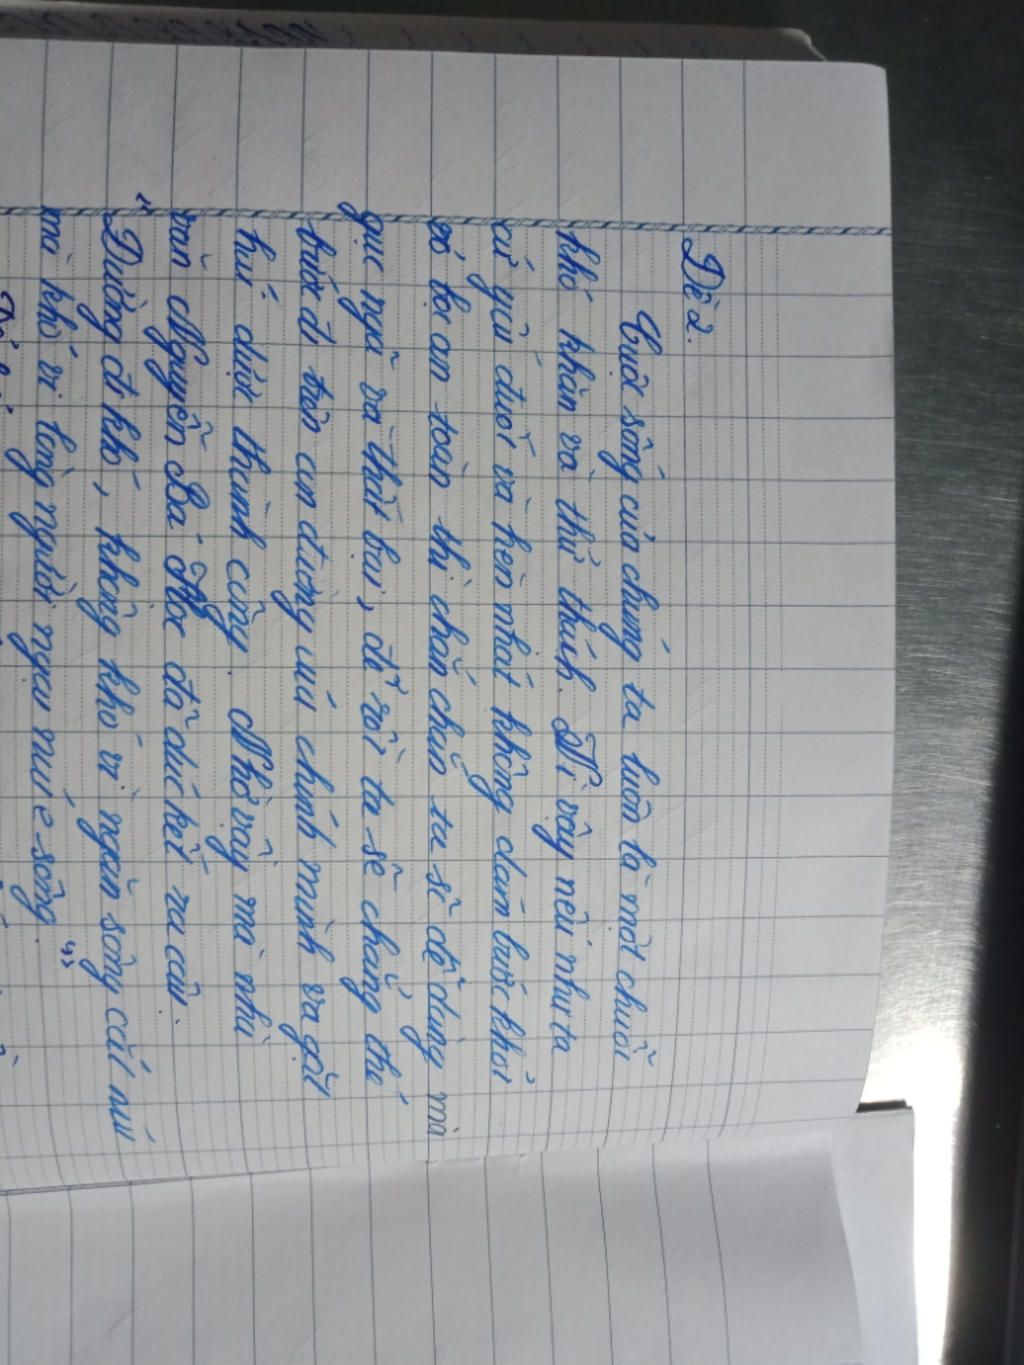 Đề 2.
Cuộc sống của chúng ta luôn là một chuỗi
khó khăn và thử thách. Vì vậy nếu như ta
cứ yếu đuối và hèn nhát không dám bước khỏi
bọc an toàn thì chắc chắn ta sẽ dễ dàng mà
gục ngã và thất bại, để rồi ta sẽ chẳng thể
bước đi trên con đường của chính mình và gặt
hái được thành công. Nhờ vậy mà nhà
văn Nguyễn Bá Học đã đúc kết ra câu:
"Đường đi khó, không khó vì ngăn sông cách núi
mà khó vì lòng người ngại núi e sông."